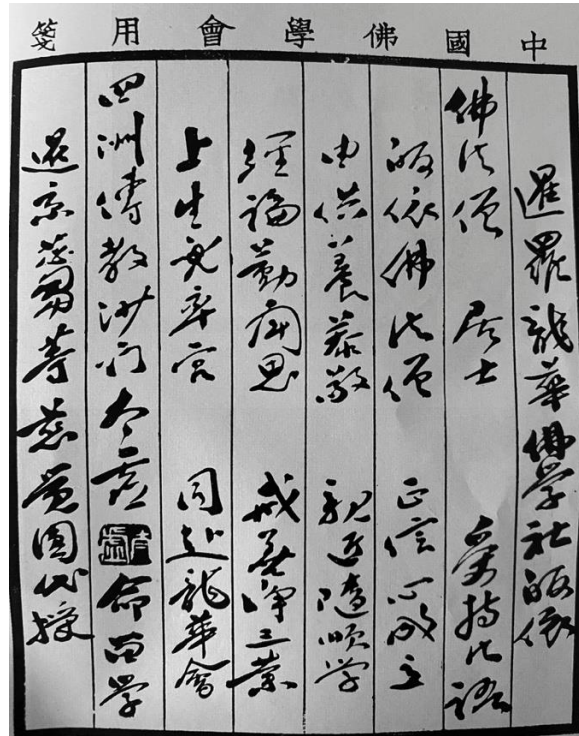 中國佛學會用箋
暹羅龍華佛学社皈依
佛法僧 居士 受持此語
皈依佛法僧 正信心成立
由供養恭敬 親近隨順学
經論勤聞思 戒善淨三業
上生兜率宮 同赴龍華會
四洲傳教沙門太虛 太虛 命留学
暹京苾芻等慈覺圓代授